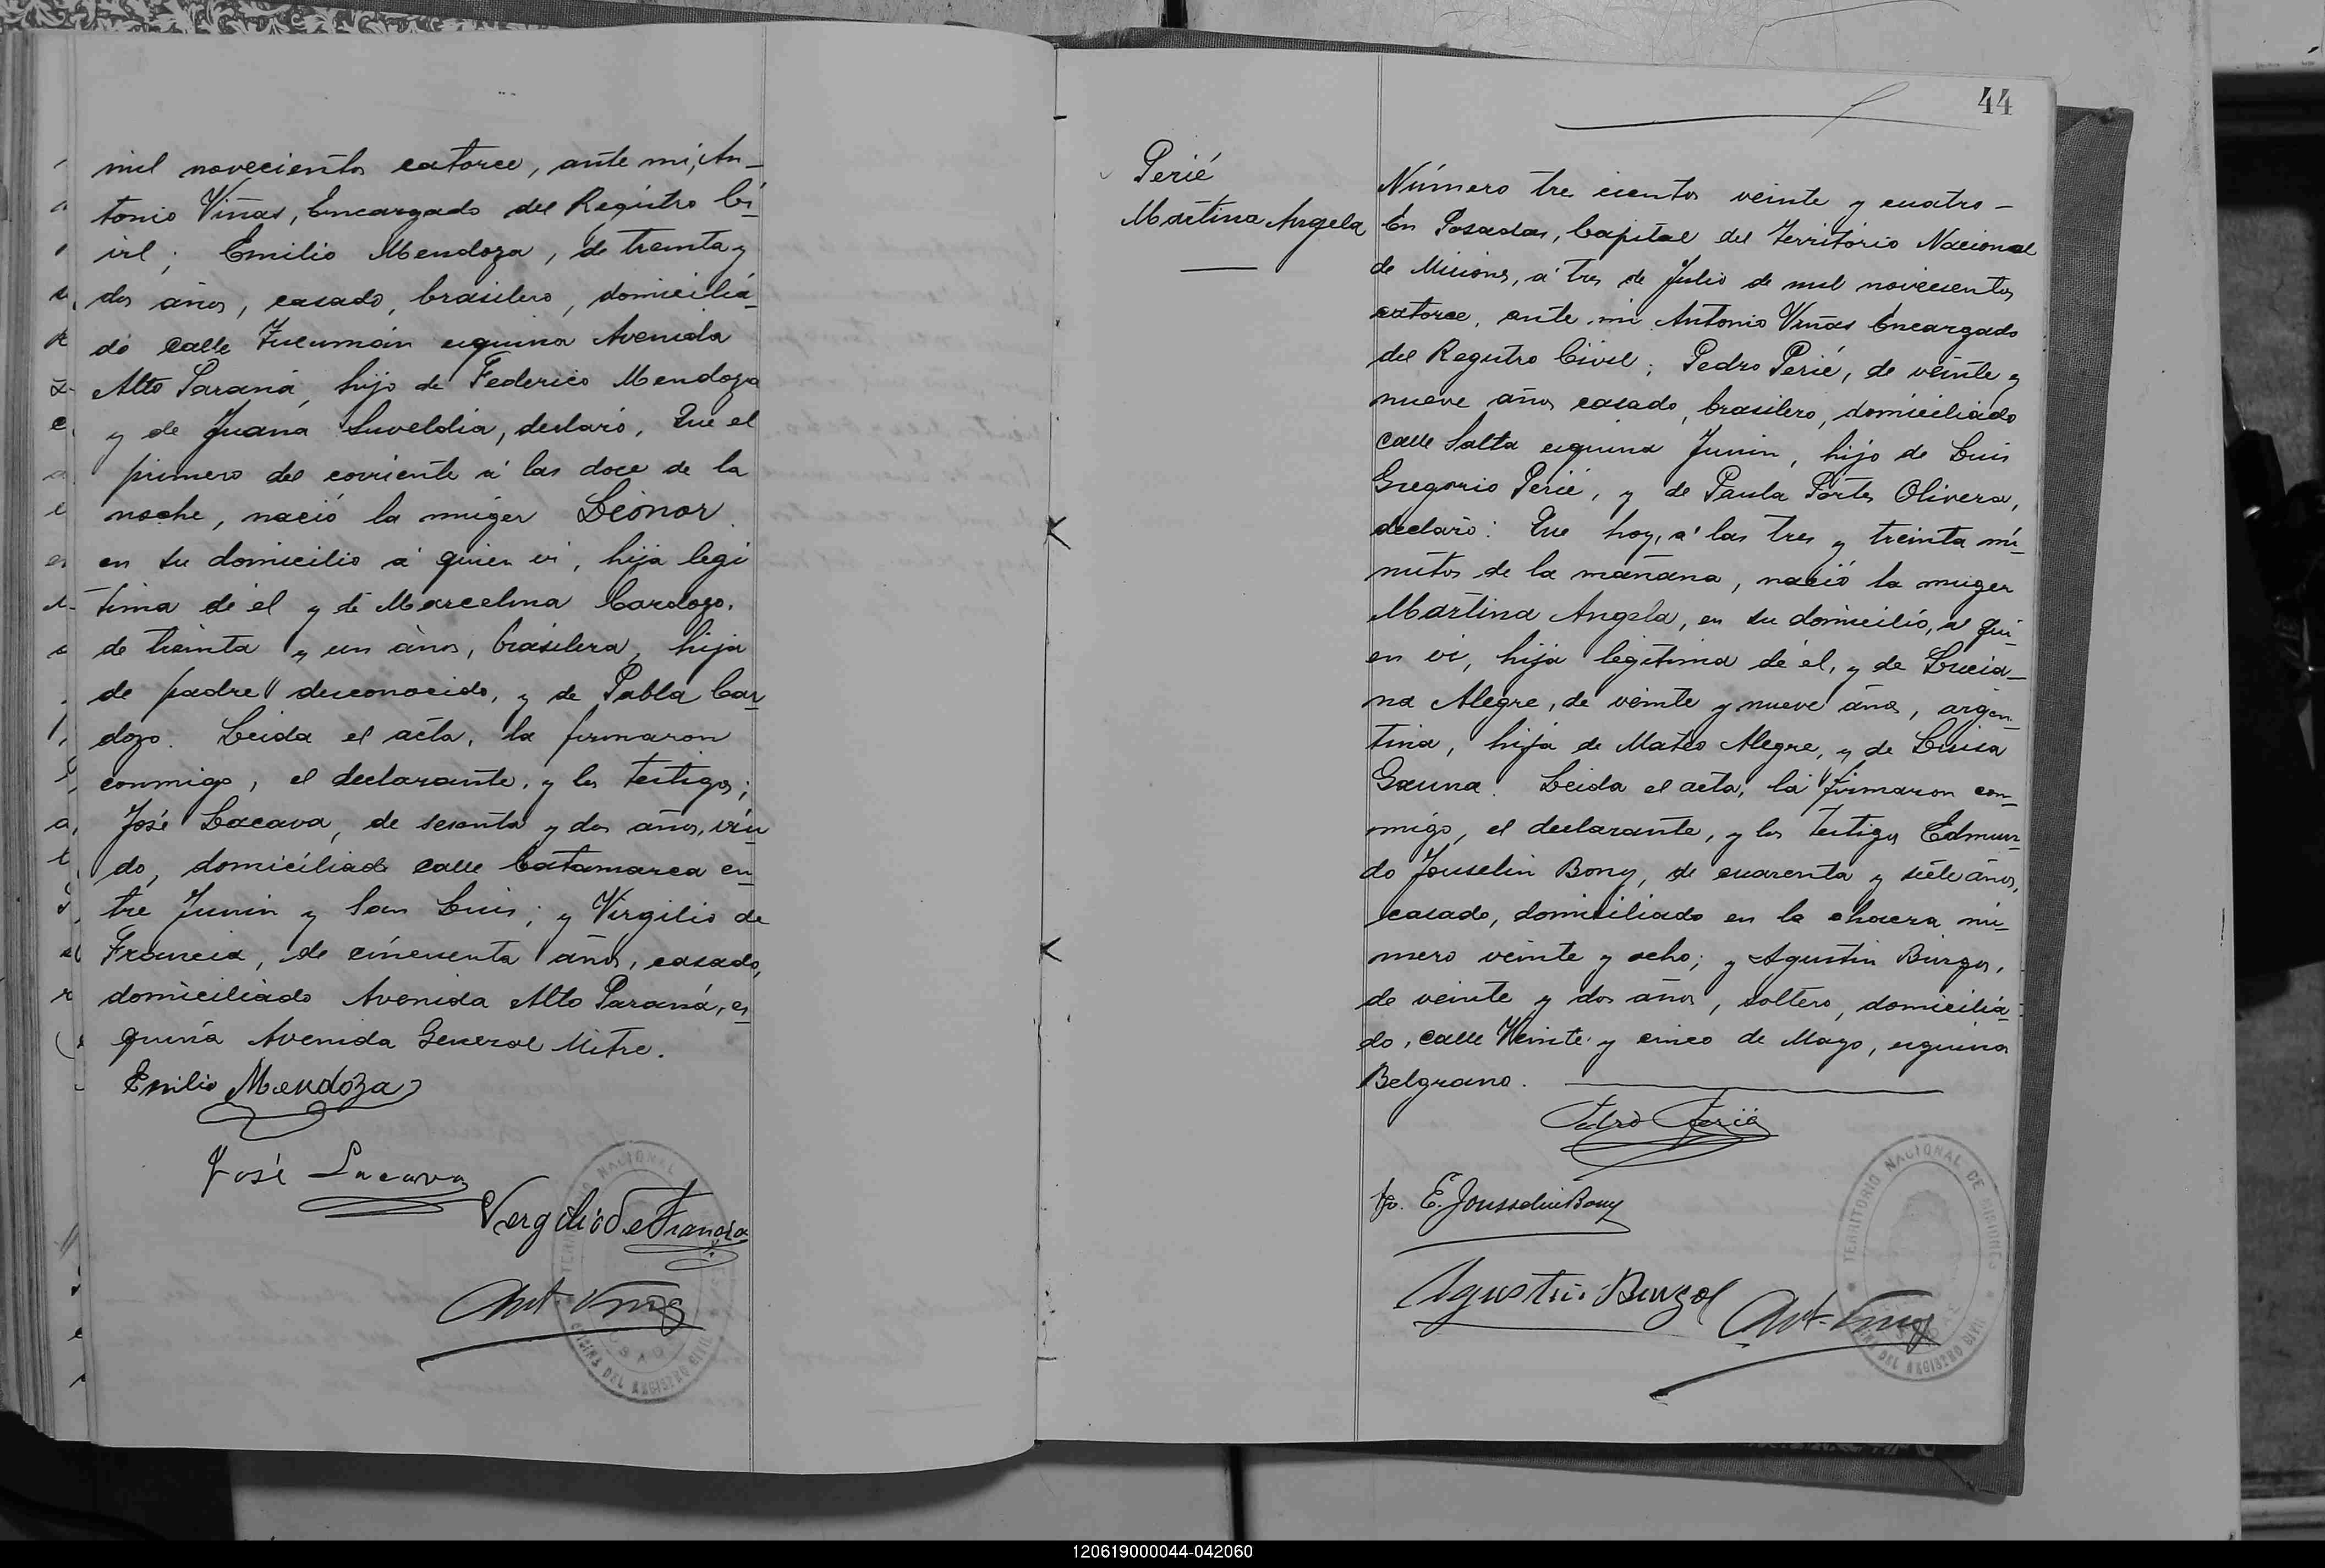 mil novecientos catorce, ante mi, An-
tonio Viñas, Encargado del Registro Ci-
vil; Emilio Mendoza, de treinta y
dos años, casado, brasilero, domicilia-
do calle Tucumán esquina Avenida
Alto Paraná, hijo de Federico Mendoza
y de Juana Suveldia, declaró, Que el
primero del corriente á las doce de la
noche, nació la muger Leonor
en su domicilio á quien vi, hija legi
tima de él y de Marcelina Cardozo,
de treinta y un años, brasilera, hija
de padre desconocido, y de Pabla Car
dozo. Leida el acta, la firmaron
conmigo, el declarante, y los testigos;
José Lacava, de sesenta y dos años, viu
do, domiciliado calle Catamarca en-
tre Junin y San Luis; y Virgilio de
Francia, de cincuenta años, casado,
domiciliado Avenida Alto Paraná, es
quina Avenida General Mitre.
Emilio Mendoza
José Lacava
Vergilio De Francia
Ant. Viñas
44
Perié
Martina Angela
Número tres cientos veinte y cuatro -
En Posadas, Capital del Territorio Nacional
de Misiones, á tres de Julio de mil novecientos
catorce, ante mi Antonio Viñas Encargado
del Registro Civil; Pedro Perié, de veinte y
nueve años casado, brasilero, domiciliado
calle Salta esquina Junin, hijo de Luis
Gregorio Perié, y de Paula Portes Olivera,
declaró: Que hoy, á las tres y treinta mi-
nutos de la mañana, nació la muger
Martina Angela, en su domicilio, a qui-
en vi, hija legitima de él, y de Lucia-
na Alegre, de veinte y nueve años, argen-
tina, hija de Mateo Alegre, y de Luisa
Gauna. Leida el acta, la firmaron con-
migo, el declarante, y los testigos Edmun-
do Jouselin Bony, de cuarenta y siete años,
casado, domiciliado en la chacra nú-
mero veinte y ocho; y Agustin Burgos,
de veinte y dos años, soltero, domicilia-
do, calle Veinte y cinco de Mayo, esquina
Belgrano.
Pedro Perié
E. Jousselin Bony
Agustin Burgos
Ant. Viñas
TERRITORIO NACIONAL DE MISIONES
OFICINA DEL REGISTRO CIVIL
120619000044-042060